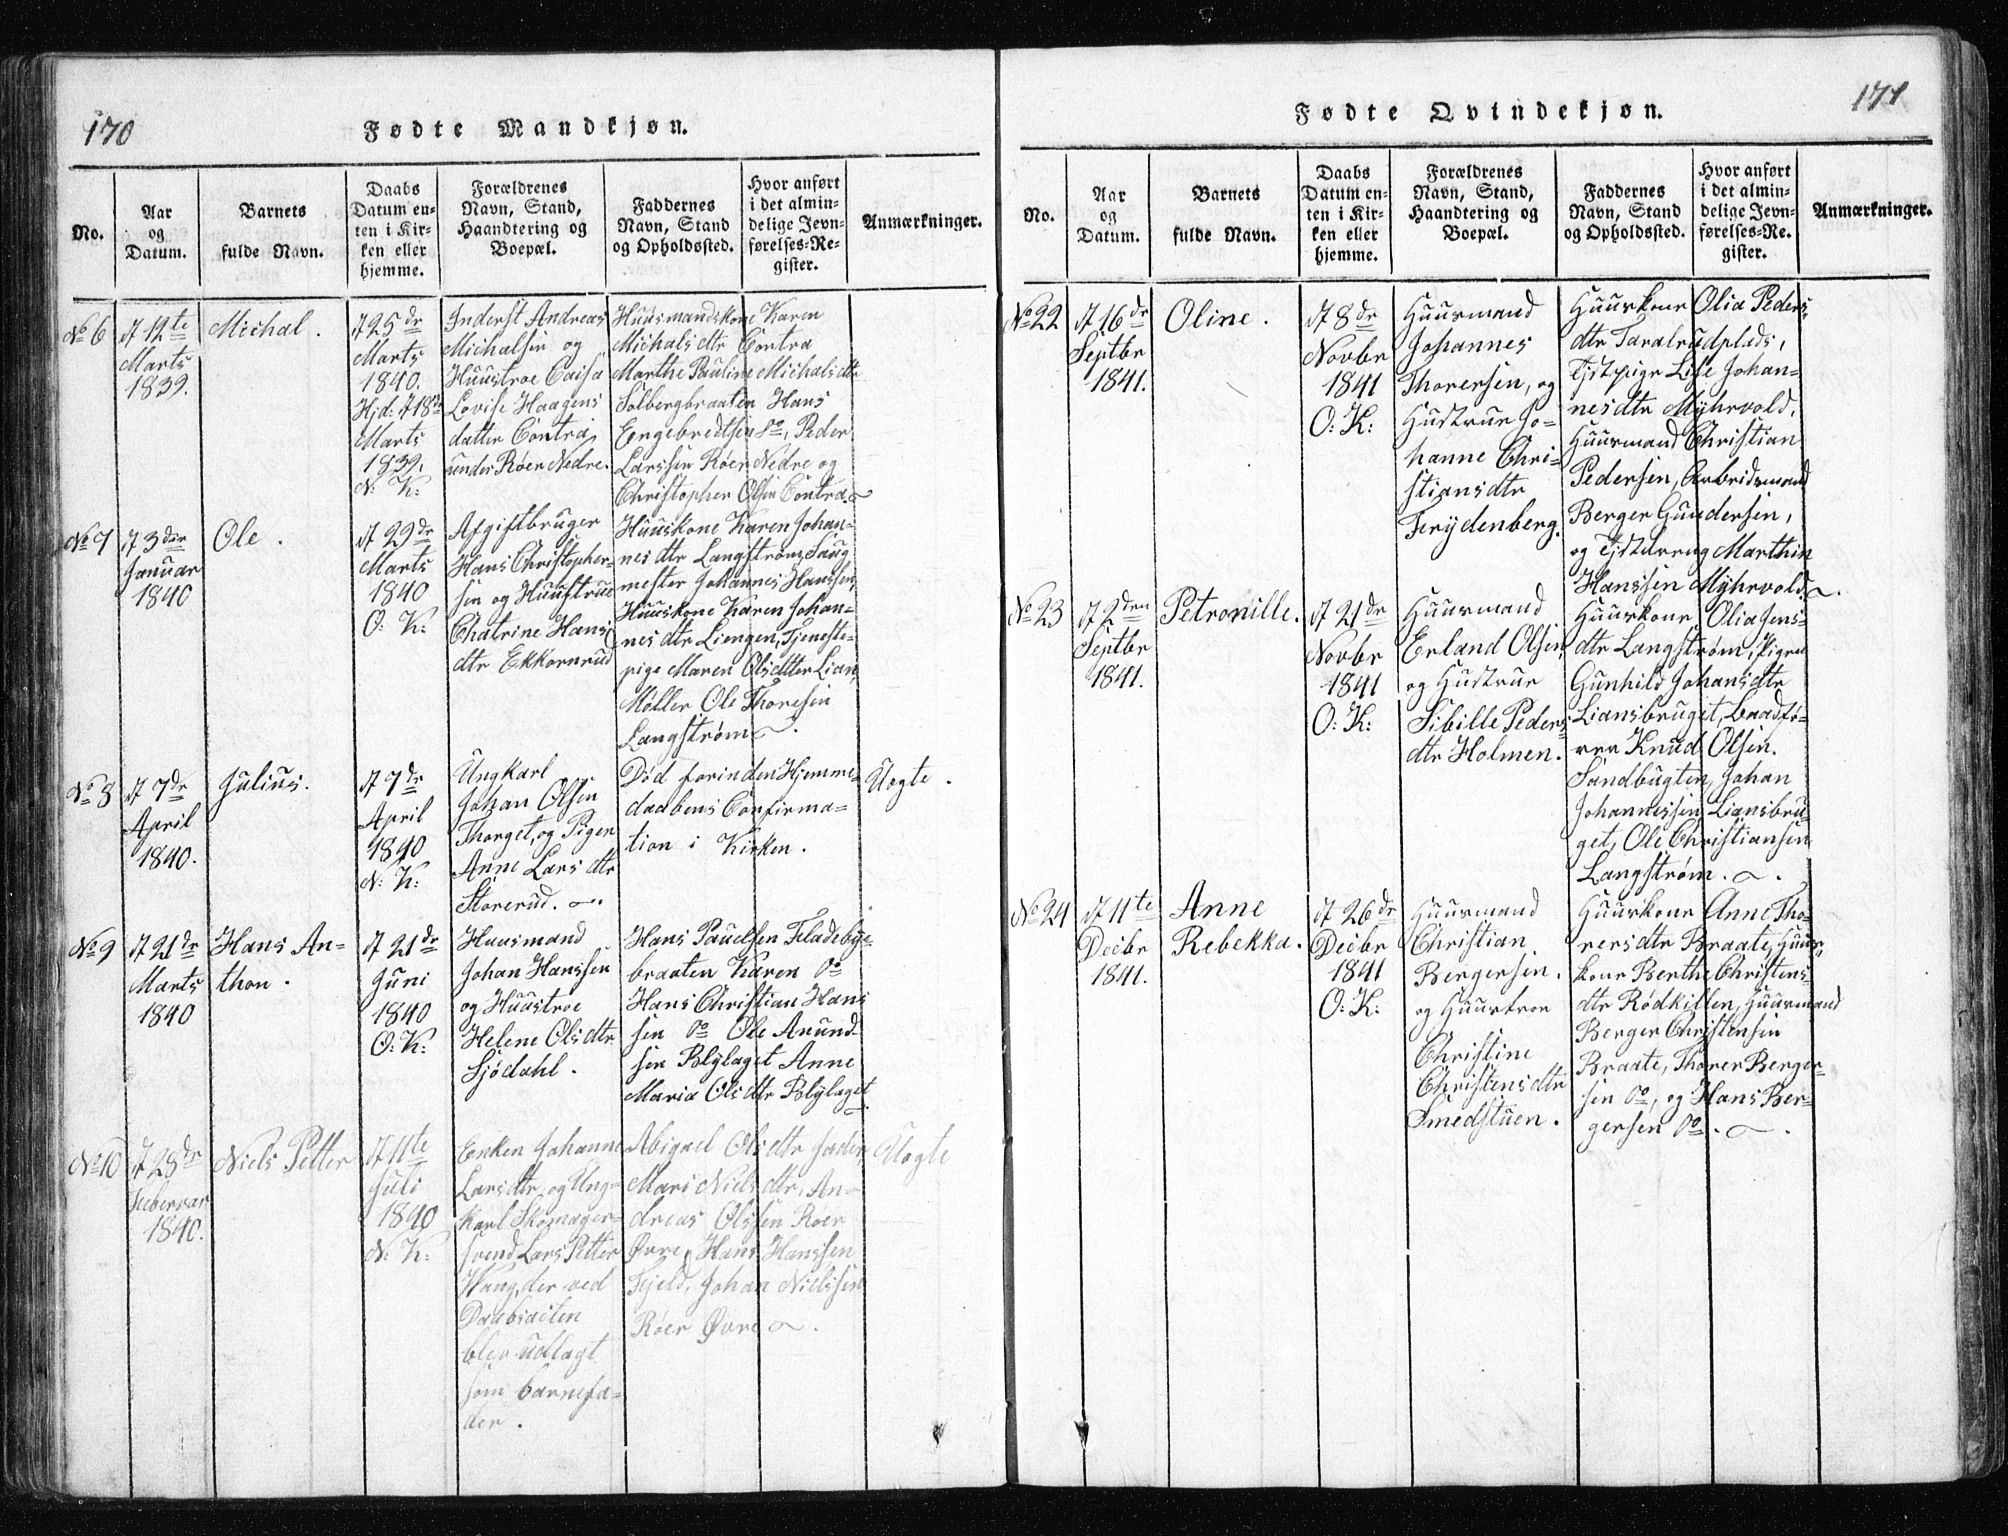 170
Fødte Mandkjøn.
No.
Aar
og
Datum.
Barnets
fulde Navn.
Daabs
Datum en-
ten i Kir-
ken eller
hjemme.
Forældrenes
Navn, Stand,
Haandtering og
Boepæl.
Faddernes
Navn, Stand
og Opholdssted.
Hvor anført
i det almin-
delige Jevn-
førelses-Re-
gister.
Anmærkninger.
No 6
d 12te
Marts
1839.
Michal.
d 25de
Marts
1840.
Hjd: d 18de
Marts
1839.
N: K:
Inderst Andreas
Michalsen og
Huustroe Caisa
Lovise Haagens
datter Contra
under Røer Nedre.
Huusmandskone Karen
Michalsdtr Contra
Marthe Pauline Michalsdtr
Solbergbraaten Hans
Engebredtsen do, Peder
Larssen Røer Nedre og
Christopher Olsen Contra.
No 7
d 3die
Januar
1840
Ole.
d 29de
Marts
1840
O: K:
Afgiftbruger
Hans Christopher-
sen og Huustrue
Chatrine Hans
dtr Ekkornrud
Huuskone Karen Johan-
nesdtr Langstrøm, Saug
mester Johannes Hanssen,
Huuskone Karen Johan-
nesdtr Liengen, Tjeneste-
pige Maren Olsdatter Lian,
Møller Ole Thoresen
Langstrøm.
No 8
d 7de
April
1840.
Julius.
d 7de
April
1840
N: K:
Ungkarl
Johan Olsen
Thorget, og Pigen
Anne Lars dtr
Storerud.
Død forinden Hjemme-
daabens Confirma-
tion i Kirken.
Uægte.
No 9
d 21de
Marts
1840
Hans An-
thon.
d 21de
Juni
1840
O: K:
Huusmand
Johan Hanssen
og Huustroe
Helene Olsdtr
Sjødahl.
Hans Pauelsen Fladebye-
braaten Karen do
Hans Christian Hans
sen do Ole Amund-
sen Blylaget Anne
Maria Olsdtr Blylaget
No 10
d 28de
Februar
1840.
Niels Petter
d 11te
Juli
1840
N: K:
Enken Johanne
Larsdtr, og Ung-
karl Skomager-
svend Lars Petter
Haug, der ved
Daabsacten
blev udlagt
som Barnefa-
der.
Abigael Olsdtr
Mari Nielsdtr, An-
dreas Olssen Roer
Øvre, Hans Hanssen
Fjeld, Johan Nielssen
Røer Øvre.
Uægte
171
Fødte Qvindekjøn.
No.
Aar
og
Datum.
Barnets
fulde Navn.
Daabs
Datum en-
ten i Kir-
ken eller
hjemme.
Forældrenes
Navn, Stand,
Haandtering og
Boepæl.
Faddernes
Navn, Stand
og Opholdssted.
Hvor anført
i det almin-
delige Jevn-
førelses-Re-
gister.
Anmærkninger.
No 22
d 16de
Septbr
1841.
Oline.
d 8de
Novbr
1841
O: K:
Huusmand
Johannes
Thorersen, og
Hustrue Jo-
hanne Chri-
stiansdtr
Frydenberg.
Huuskone Olia Peders
dtr Taralrudplads,
Tjstpige Lise Johan-
nesdtr Myhrvold,
Huusmand Christian
Pedersen, Arbeidsmand
Berger Gundersen,
og Tjstdreng Marthin
Hanssen Myhrvold.
No 23
d 2den
Septbr
1841.
Petronille.
d 21de
Novbr
1841
O: K:
Huusmand
Erland Olsen,
og Hustrue
Sibille Peders
dtr Holmen.
Huuskone Olia Jens-
dtr Langstrøm, Pigen
Gunhild Johansdtr
Liansbruget, Baadfø-
rer Knud Olsen.
Sandbugten, Johan
Johannessen Liansbru-
get, Ole Christiansen
Langstrøm.
No 24
d 11te
Decbr
1841.
Anne
Rebekka.
d 26de
Decbr
1841
O: K:
Huusmand
Christian
Bergersen.
og Huustroe
Christine
Christensdtr
Smedstuen.
Huuskone Anne Tho-
rersdtr Braate, Huus-
kone Berthe Christens-
dtr Rødkillen, Huusmand
Berger Christensen
Braate, Thorer Berger-
sen do, og Hans Ber-
gersen do.